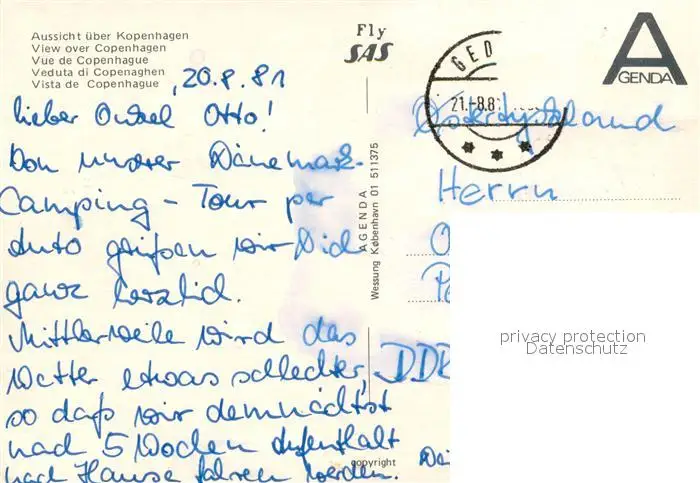 Aussicht über Kopenhagen
View over Copenhagen
Vue de Copenhague
Veduta di Copenaghen
Vista de Copenhague
, 20.8.81
Lieber Onkel Otto!
Von unserer Dänemark-
Camping - Tour per
Auto grüßen wir Dich
ganz herzlich.
Mittlerweile wird das
Wetter etwas schlechter,
so daß wir demnächst
nach 5 Wochen Aufenthalt
nach Hause fahren werden.
Fly
SAS
AGENDA
Wessung København 01 511375
copyright
GED
21.-8.8
A
AGENDA
Herrn
O
DDR
privacy protection
Datenschutz